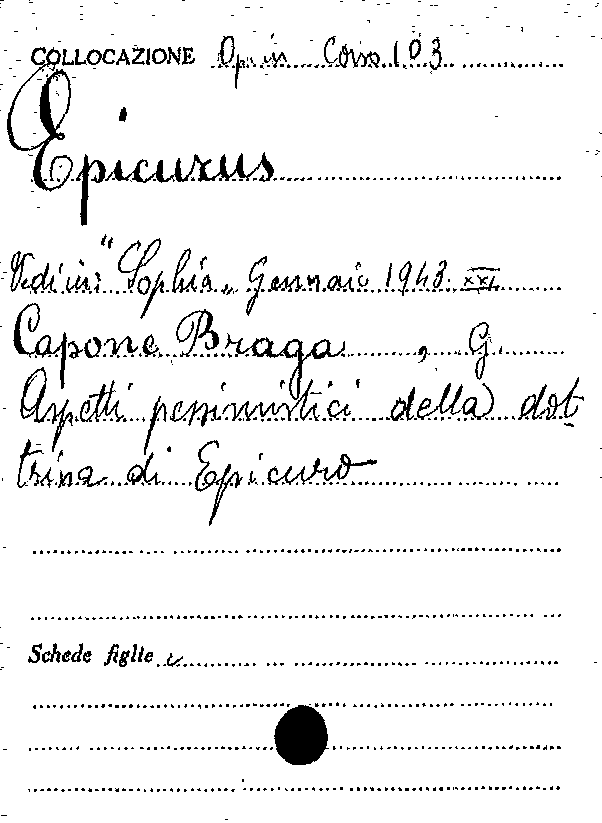 COLLOCAZIONE Op. in Corso 103
Epicurus
Vedi in: "Sophia„ Gennaio 1943 XXI
Capone Braga, G.
Aspetti pessimistici della dot
trina di Epicuro
Schede figlie